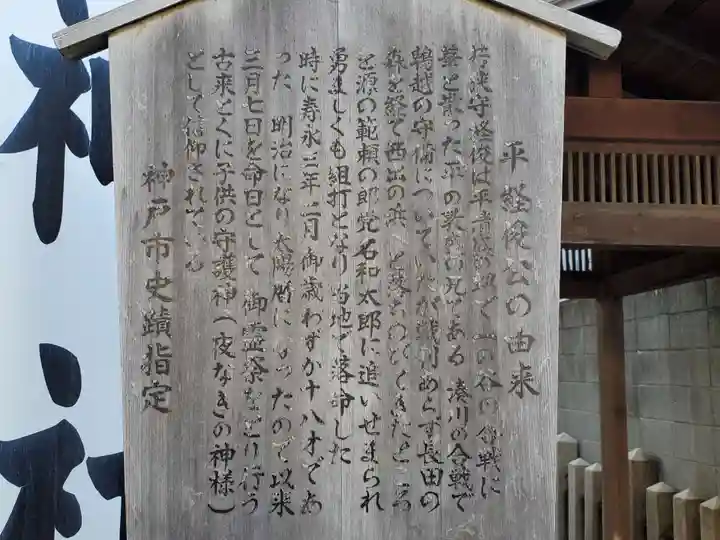 平経俊公の由来
若狭守経俊は平清盛の甥で一の谷の合戦に
華と散った平の敦盛の兄である 湊川の合戦で
鵯越の守備についていたが戦利あらず長田の
森を経て西出の浜へと落ちのびてきたところ
を源の範頼の郎党名和太郎に追いせまられ
勇ましくも組打となり当地で落命した
時に寿永三年二月 御歳わずか十八才であ
った 明治になり太陽暦になったので以来
三月七日を命日として 御霊祭などとり行う
古来とくに子供の守護神(夜なきの神様)
として信仰されている
神戸市史蹟指定
神社